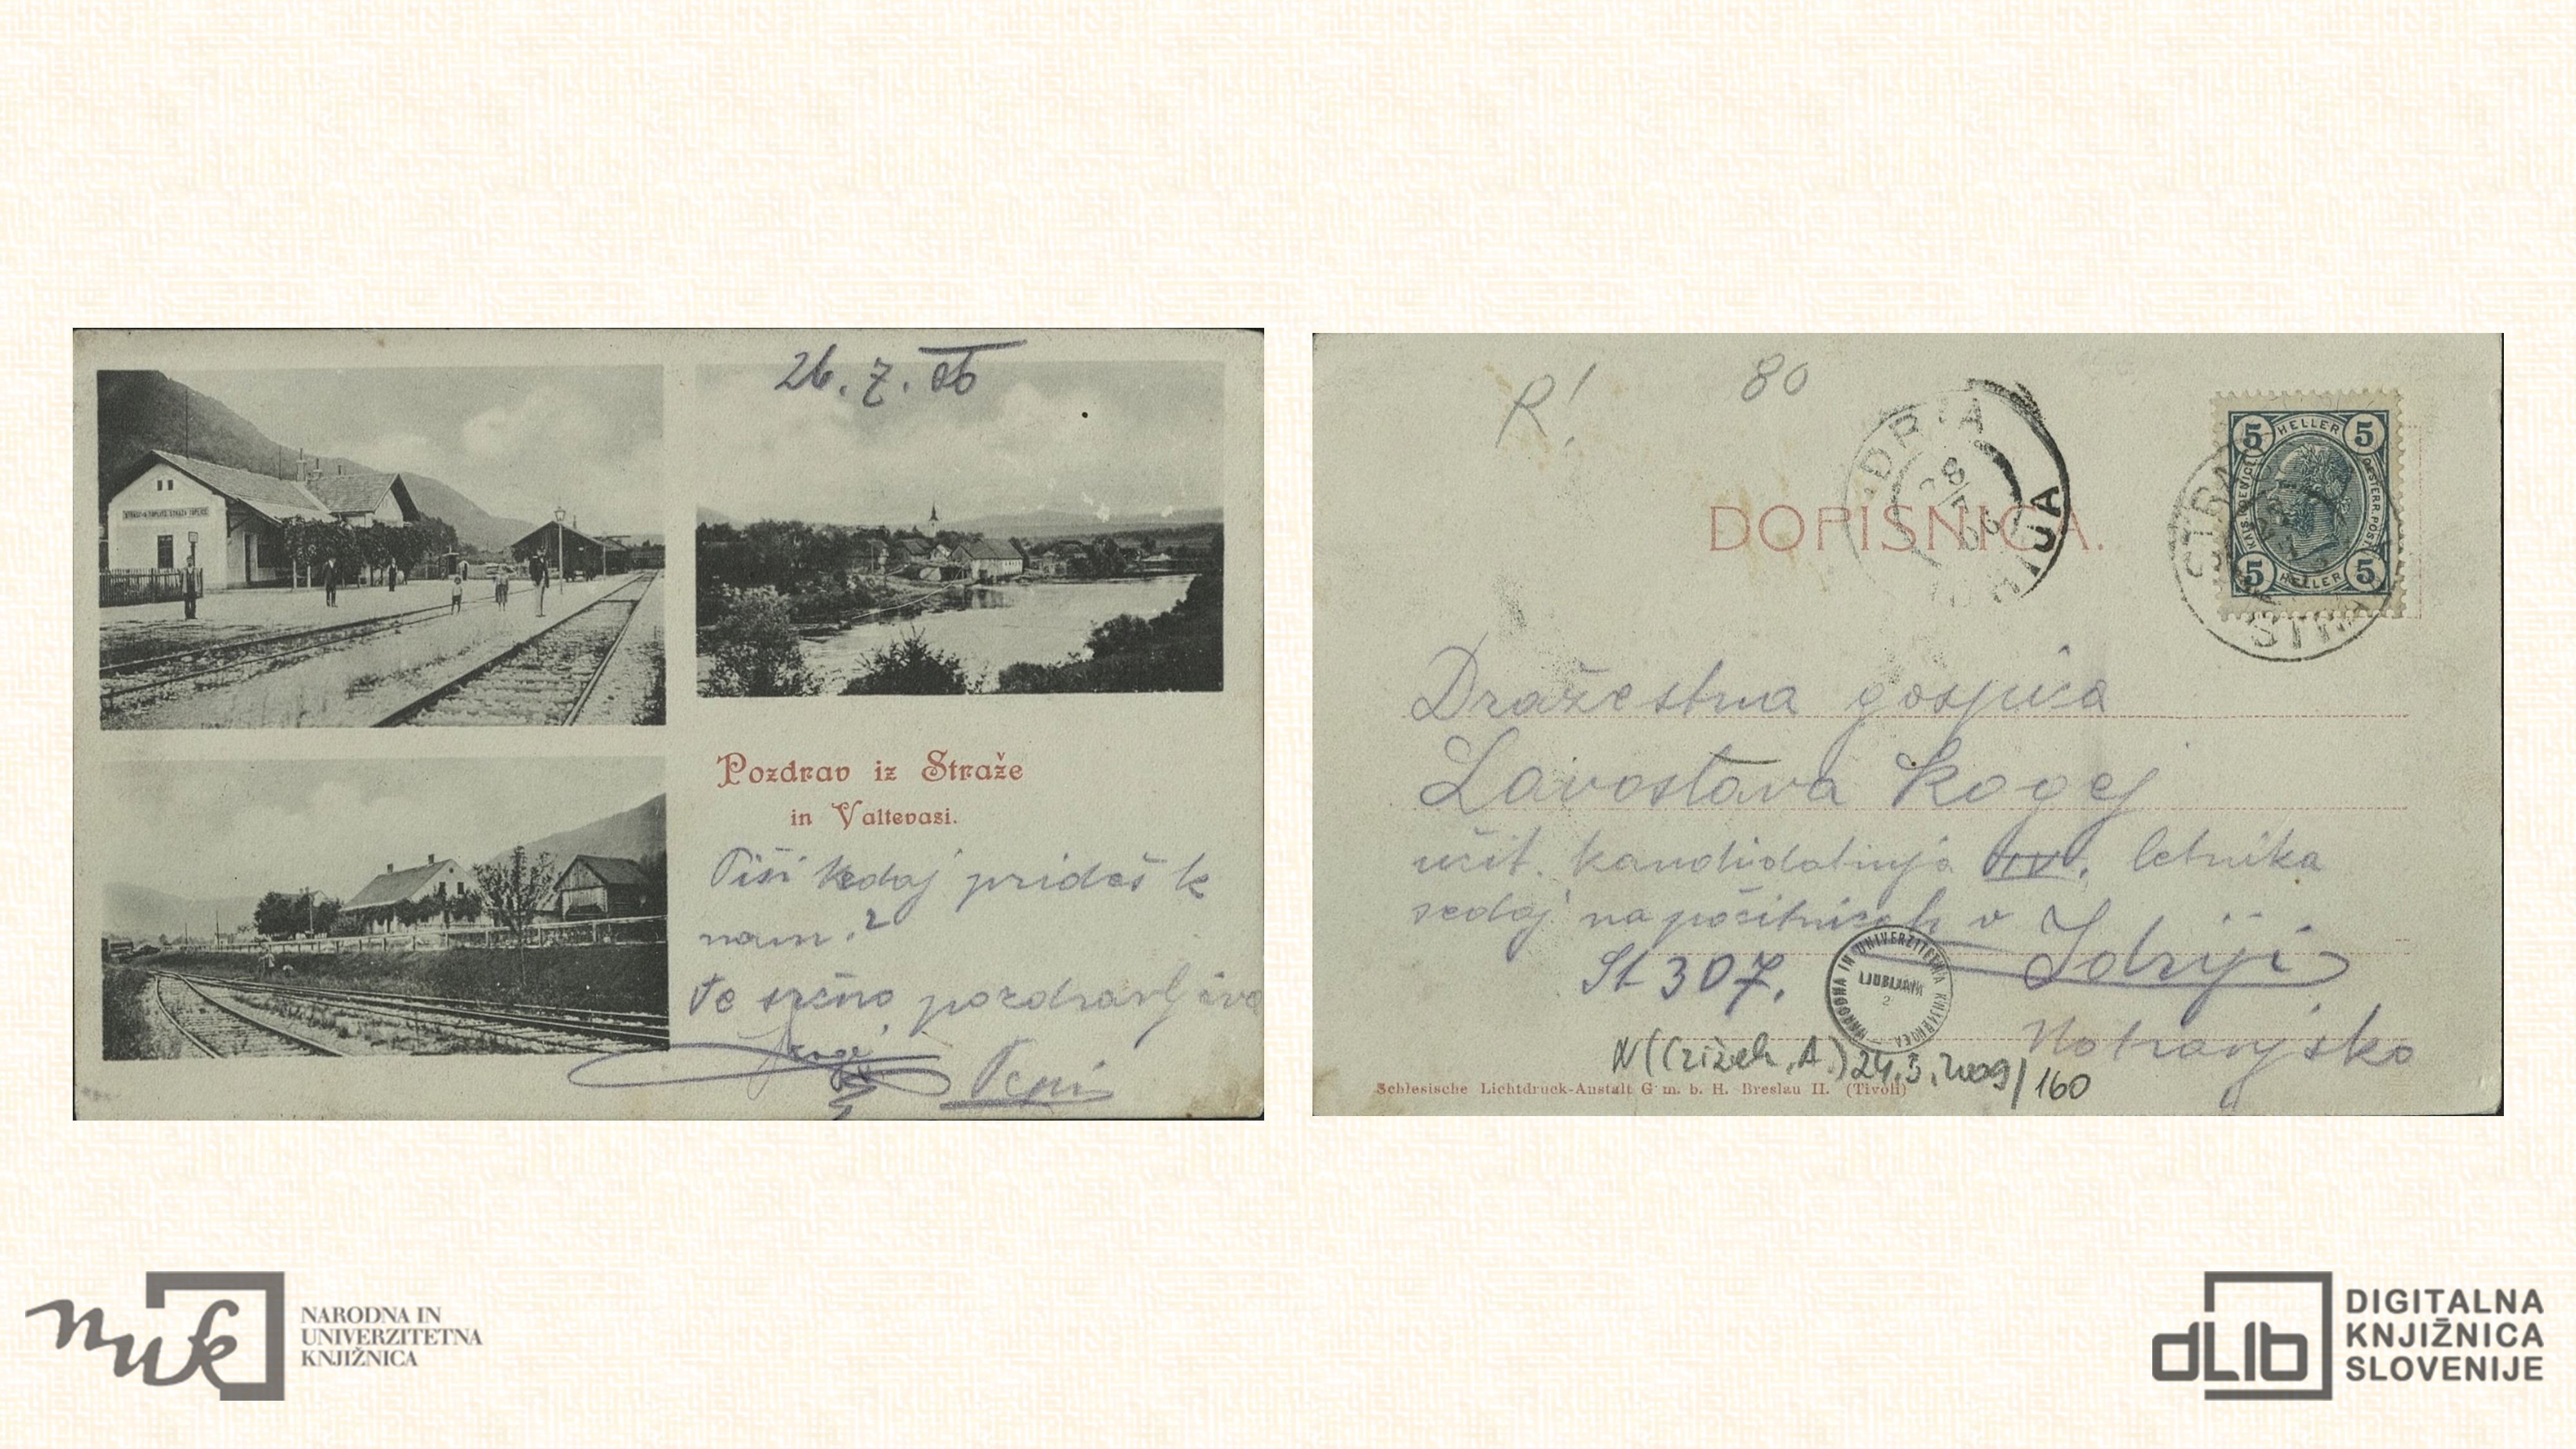 26. 7. 06
Pozdrav iz Straže
in Valtevasi.
Piši kedaj prideš k
nam.?
Te srčno pozdravljava
Pepi
R!
80
DOPISNICA.
IDRIA
28
7
06
IDRIJA
5 HELLER 5
KAIS. KOENIGL. OESTERR. POST.
5 HELLER 5
STRA
Dražestna gospica
Lavoslava Kogej
učit. kandidatinja IV. letnika
sedaj na počitnicah v Idriji
Št 307.
Notranjsko
NARODNA IN UNIVERZITETNA KNJIŽNICA
LJUBLJANA
2
N (Čižek, A.) 24.3.2009/160
Schlesische Lichtdruck-Anstalt G. m. b. H. Breslau II. (Tivoli)
nuk
NARODNA IN
UNIVERZITETNA
KNJIŽNICA
dLib
DIGITALNA
KNJIŽNICA
SLOVENIJE